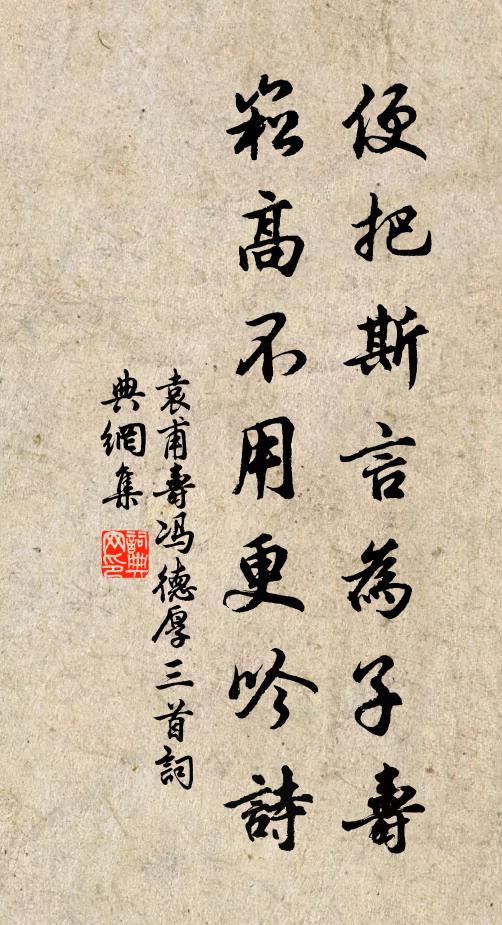 便把斯言為子壽
崧高不用更吟詩
袁甫壽冯德厚三首詞
典網集
詞典
网印